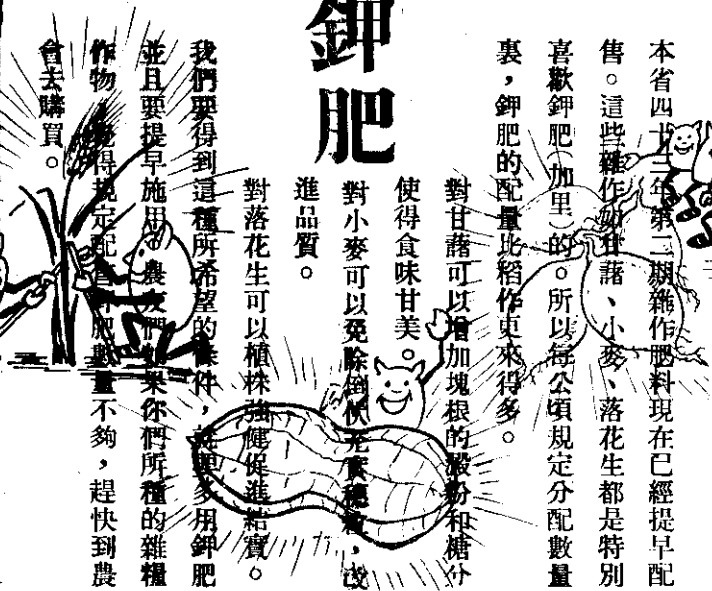 鉀肥
本省四十三年第二期雜作肥料現在已經提早配
售。這些雜作如甘藷、小麥、落花生都是特別
喜歡鉀肥（加里）的。所以每公頃規定分配數量
裏，鉀肥的配量比稻作更來得多。
對甘藷可以增加塊根的澱粉和糖分
使得食味甘美。
對小麥可以免除倒伏充實穗粒，改
進品質。
對落花生可以植株強健促進結實。
我們要得到這種所希望的條件，就要多用鉀肥
並且要提早施用。農友們如果你們所種的雜糧
作物，覺得規定配售鉀肥數量不夠，趕快到農
會去購買。